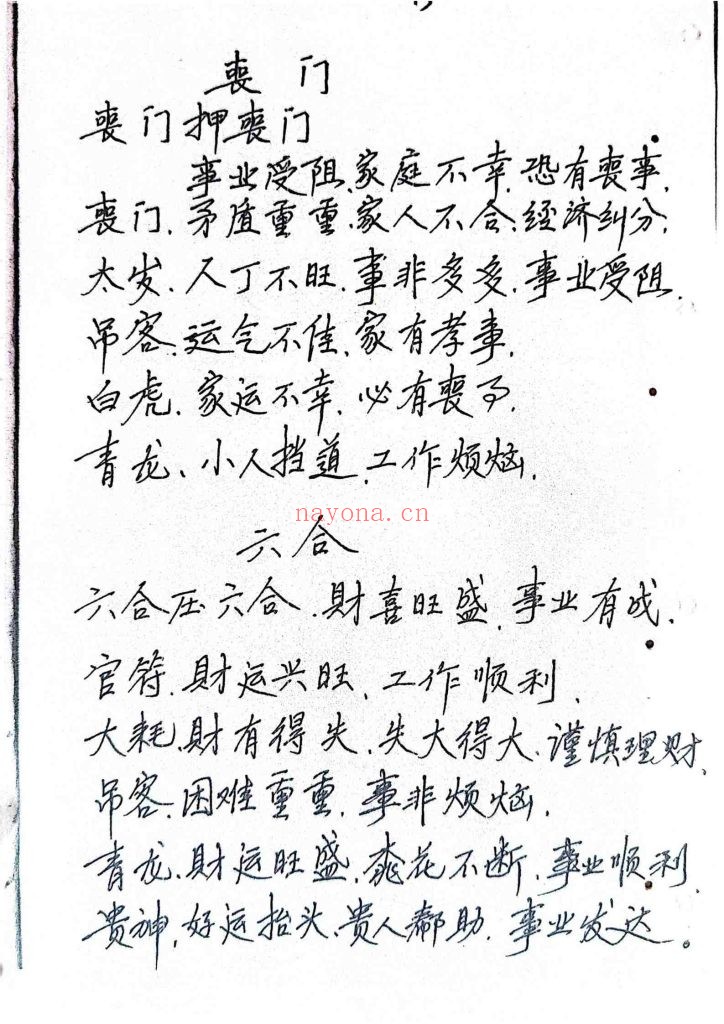 喪门
喪门押喪门
事业受阻.家庭不幸.恐有喪事.
喪门.矛盾重重.家人不合.经济纠分.
太岁.人丁不旺.事非多多.事业受阻.
吊客.运气不佳.家有孝事.
白虎.家运不幸.必有喪
青龙、小人挡道.工作烦恼.
nayona.cn
六合
六合压六合.财喜旺盛.事业有成.
官符.财运兴旺.工作顺利.
大耗.财有得失.失大得大.谨慎理财.
吊客.困难重重.事非烦恼.
青龙.财运旺盛.桃花不断.事业顺利
贵神.好运抬头.贵人帮助.事业发达。